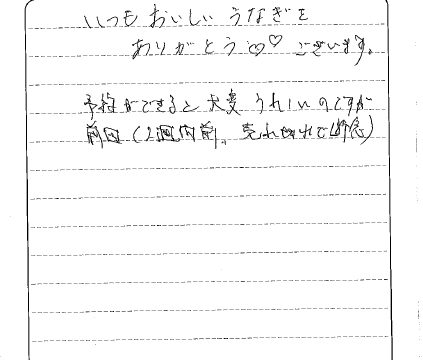 いつもおいしいうなぎを
ありがとう♡♡ございます。
予約ができると大変うれしいのですが
前回(2週間前、売れ切れで残念)